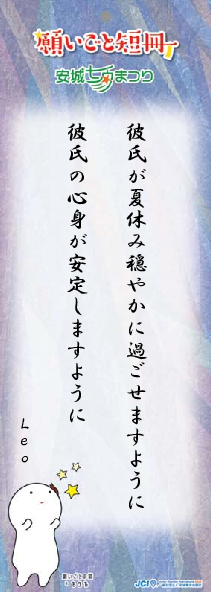 願いごと短冊
安城七夕まつり
彼氏が夏休み穏やかに過ごせますように
彼氏の心身が安定しますように
Leo
願いごとの国
JCI